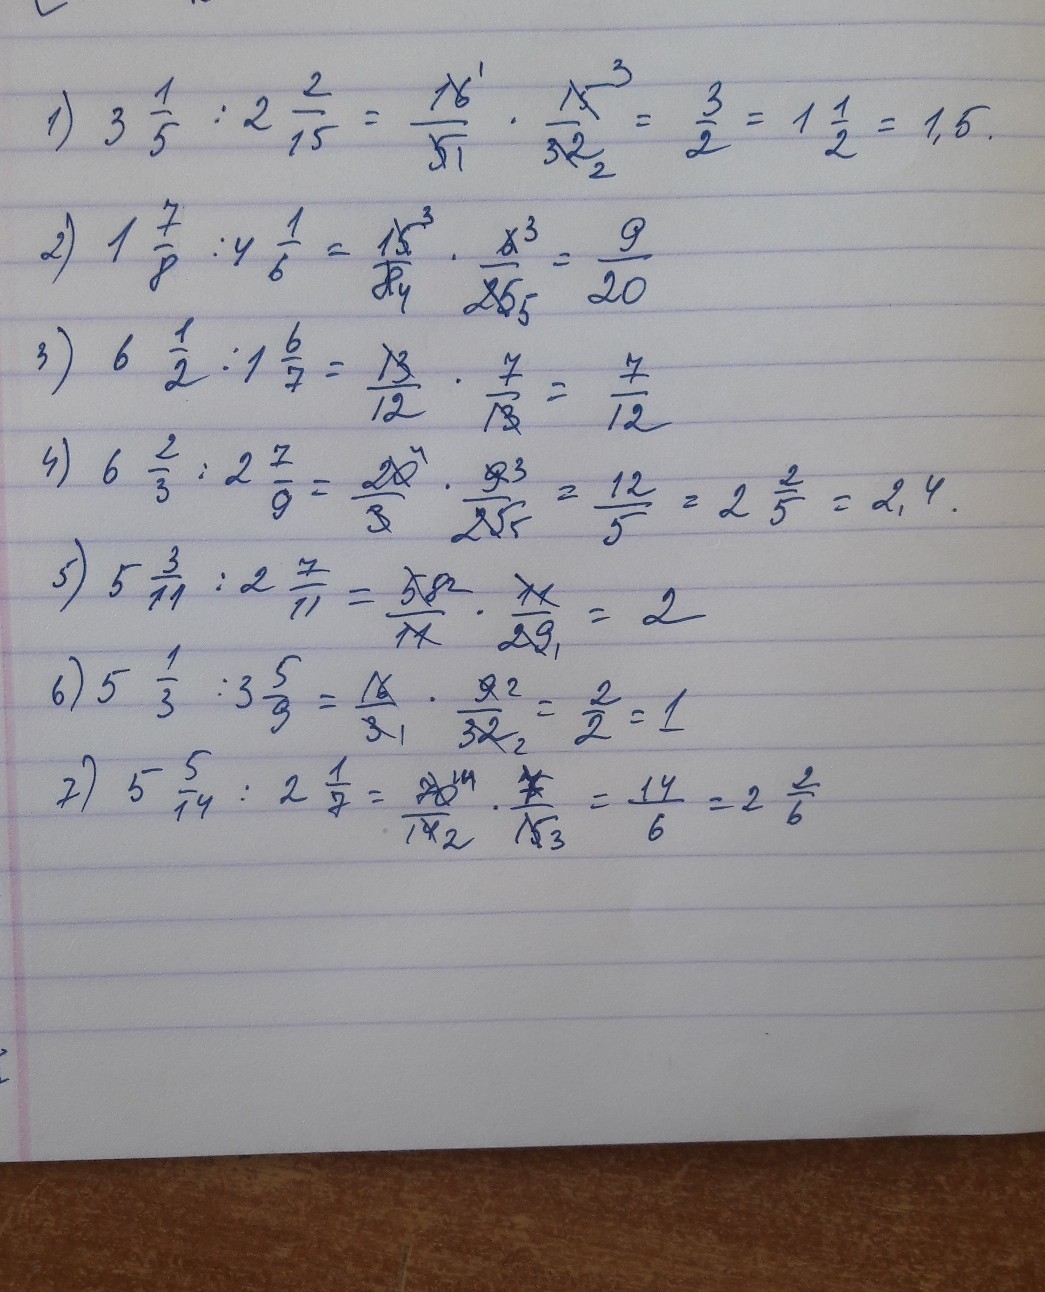 1) 3 1/5 : 2 2/15 = 16 1/5 1 · 15 3/32 2 = 3/2 = 1 1/2 = 1,5.
2) 1 7/8 : 4 1/6 = 15 3/8 4 · 6 3/25 5 = 9/20
3) 6 1/2 : 1 6/7 = 13/12 · 7/13 = 7/12
4) 6 2/3 : 2 7/9 = 20 4/3 · 9 3/25 5 = 12/5 = 2 2/5 = 2,4.
5) 5 3/11 : 2 7/11 = 58 2/11 · 11/29 1 = 2
6) 5 1/3 : 3 5/9 = 16/3 1 · 9 2/32 2 = 2/2 = 1
7) 5 5/14 : 2 1/7 = 70 14/14 2 · 7/15 3 = 14/6 = 2 2/6